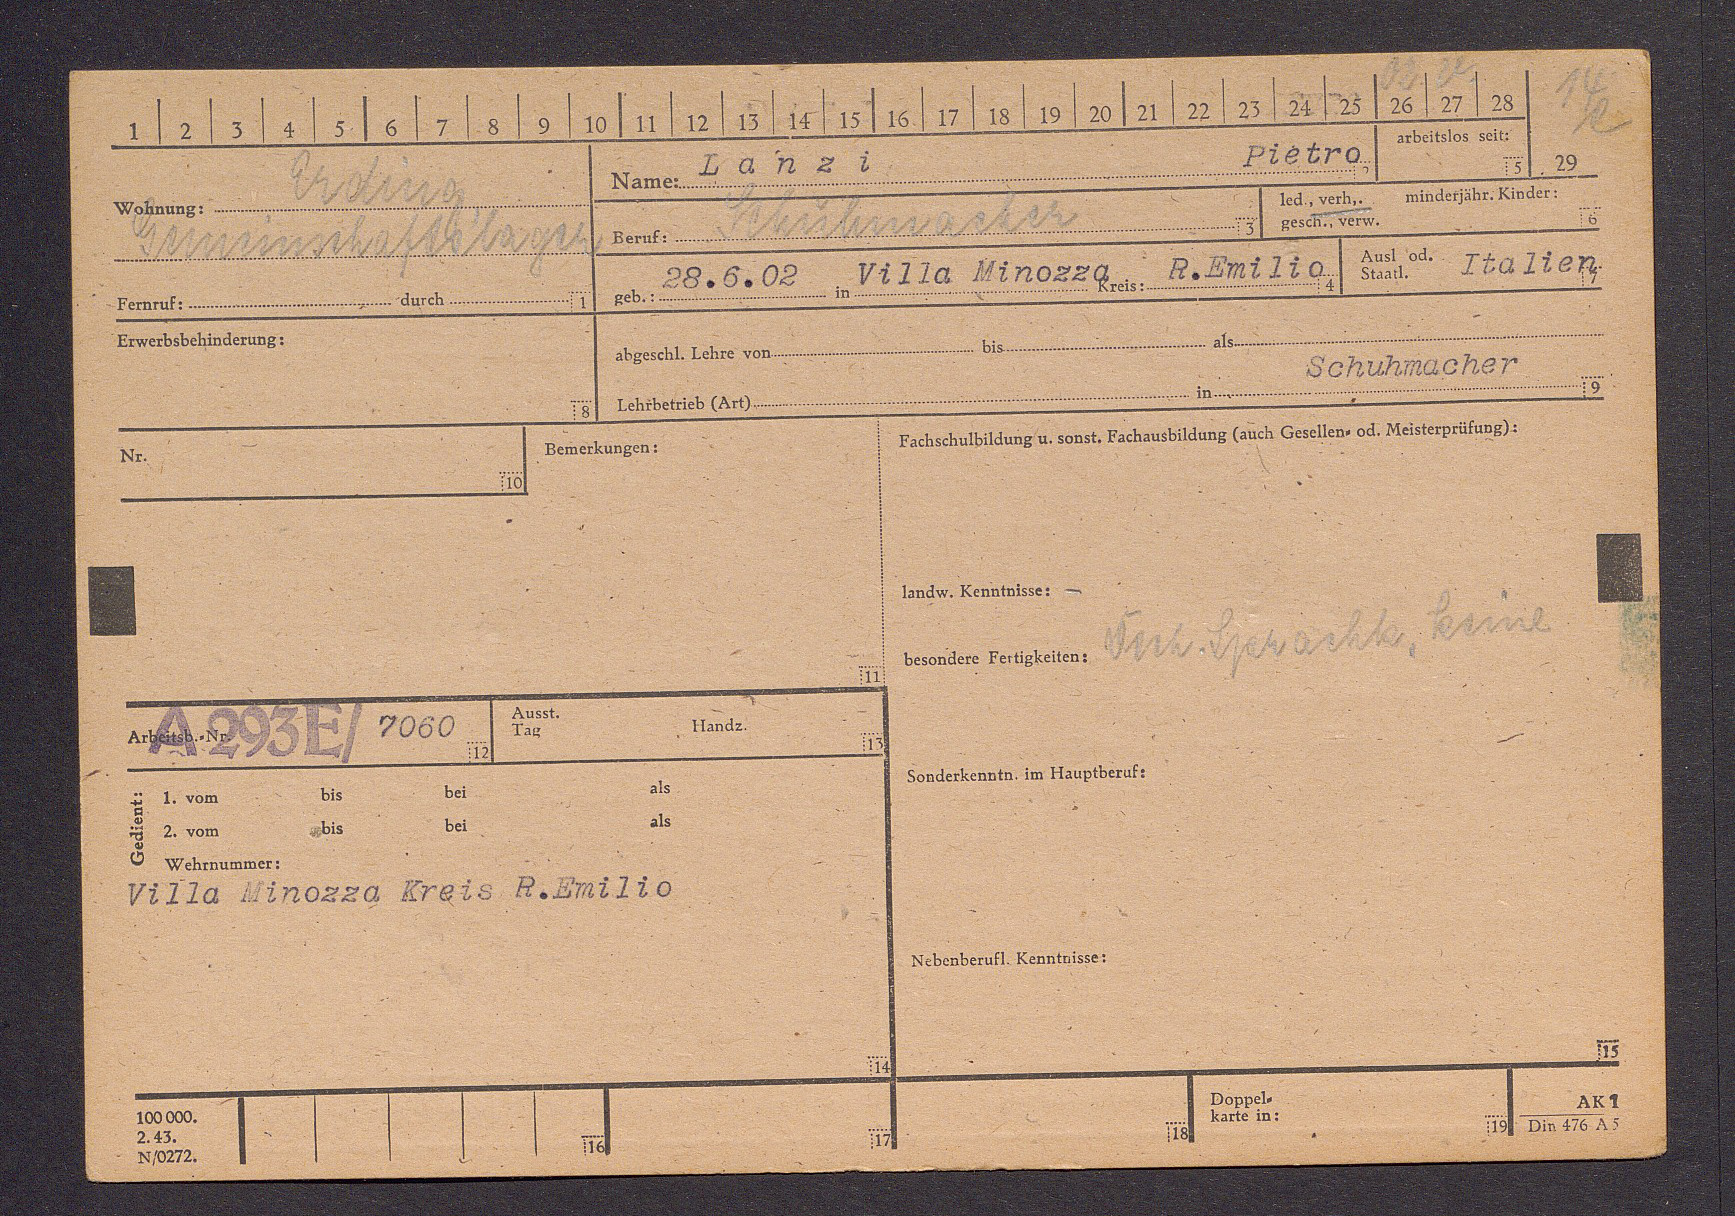 1 2 3 4 5 6 7 8 9 10 11 12 13 14 15 16 17 18 19 20 21 22 23 24 25 26 27 28
14/2
arbeitslos seit:
5 29
Name: Lanzi Pietro
Erding
Wohnung:
Gemeinschaftslager
Beruf: Schuhmacher 3
led., verh., minderjähr. Kinder:
gesch., verw. 6
geb.: 28.6.02 in Villa Minozza Kreis: R.Emilio 4
Ausl od.
Staatl. Italien 7
Fernruf: durch 1
Erwerbsbehinderung:
8
abgeschl. Lehre von bis als
Schuhmacher
Lehrbetrieb (Art) in 9
Nr.
10
Bemerkungen:
11
Fachschulbildung u. sonst. Fachausbildung (auch Gesellen- od. Meisterprüfung):
landw. Kenntnisse: –
besondere Fertigkeiten: Sprachk. keine
Sonderkenntn. im Hauptberuf:
Nebenberufl. Kenntnisse:
15
Arbeitsb.-Nr. A 293E/ 7060 12
Ausst.
Tag Handz. 13
Gedient:
1. vom bis bei als
2. vom bis bei als
Wehrnummer:
Villa Minozza Kreis R.Emilio
14
100 000.
2. 43.
N/0272.
16 17 18
Doppel-
karte in: 19
AK 1
Din 476 A 5